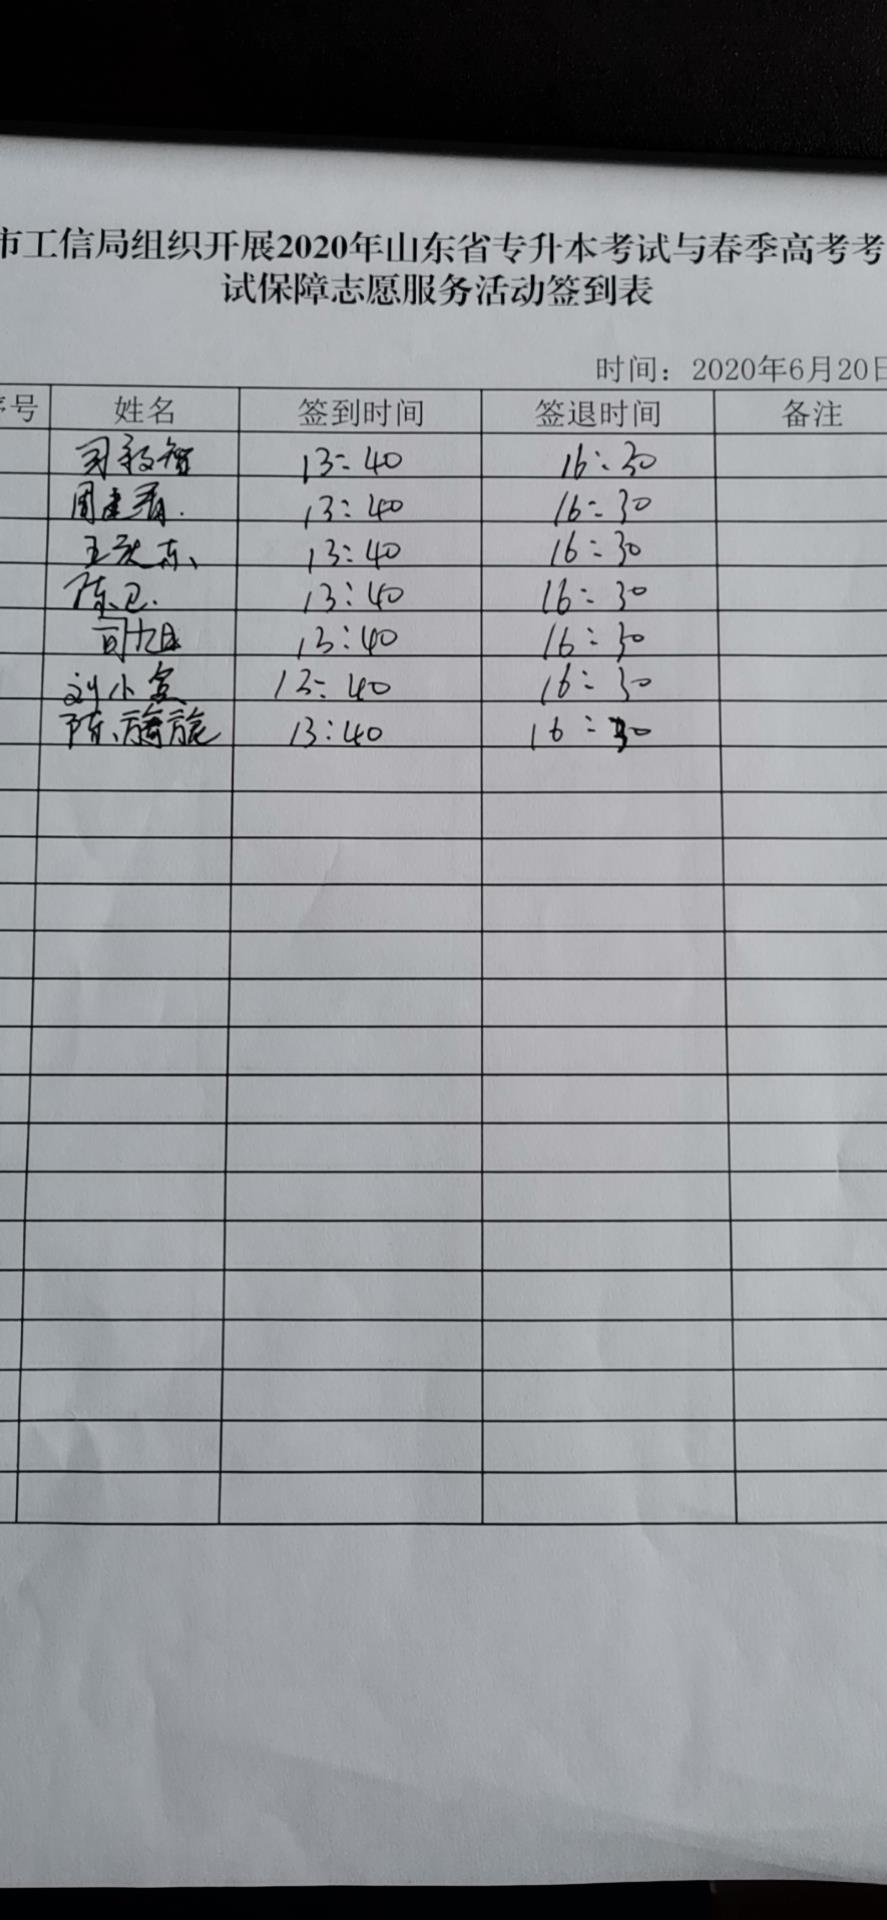 市工信局组织开展2020年山东省专升本考试与春季高考考
试保障志愿服务活动签到表
时间：2020年6月20日
序号 姓名 签到时间 签退时间 备注
13:40 16:30
周建 13:40 16:30
王 东 13:40 16:30
陈卫 13:40 16:30
司旭 13:40 16:30
刘小 13:40 16:30
陈旖旎 13:40 16:30